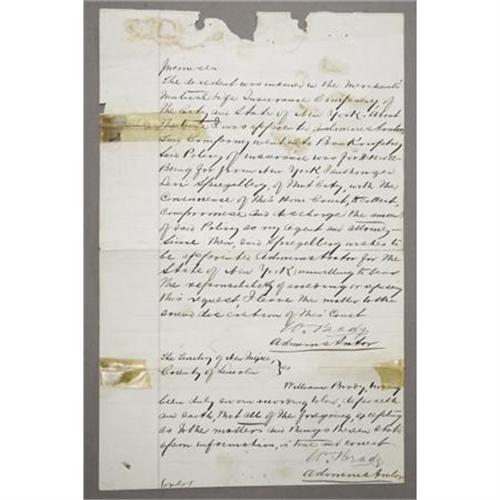 The decedent was insured in the Merchants
Mutual Life Insurance Company, of
the City and State of New York. About
the time I was appointed Administrator,
said Company went in to Bankruptcy
said Policy of insurance was for
Being far from New York I authorized
Levi Spiegelberg, of that City, with the
Concurence of this Hone Court, to Collect,
Compromise and discharge the amount
of said Policy as my Agent and attorney
Since then, said Spiegelberg wishes to
be appointed Administrator for the
State of New York, unwilling to bear
the responsibility of acceeding or refusing
this request, I leave the matter to the
sound discretion of this Court
W. Brady
Administrator
The Territory of New Mexico
County of Lincoln
William Brady, having
been duly sworn according to law, deposeth
and saith, that all of the foregoing, excepting
as to the matters and things therein stated
upon information, is true and correct
W. Brady
Administrator